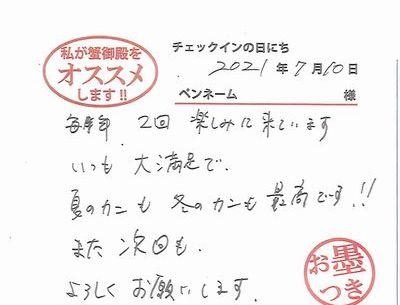 私が蟹御殿を
オススメ
します!!
チェックインの日にち
2021年7月10日
ペンネーム 様
毎年 2回 楽しみに来ています
いつも 大満足で、
夏のカニも 冬のカニも 最高です!!
また 次回も、
よろしく お願いします。
お墨
つき